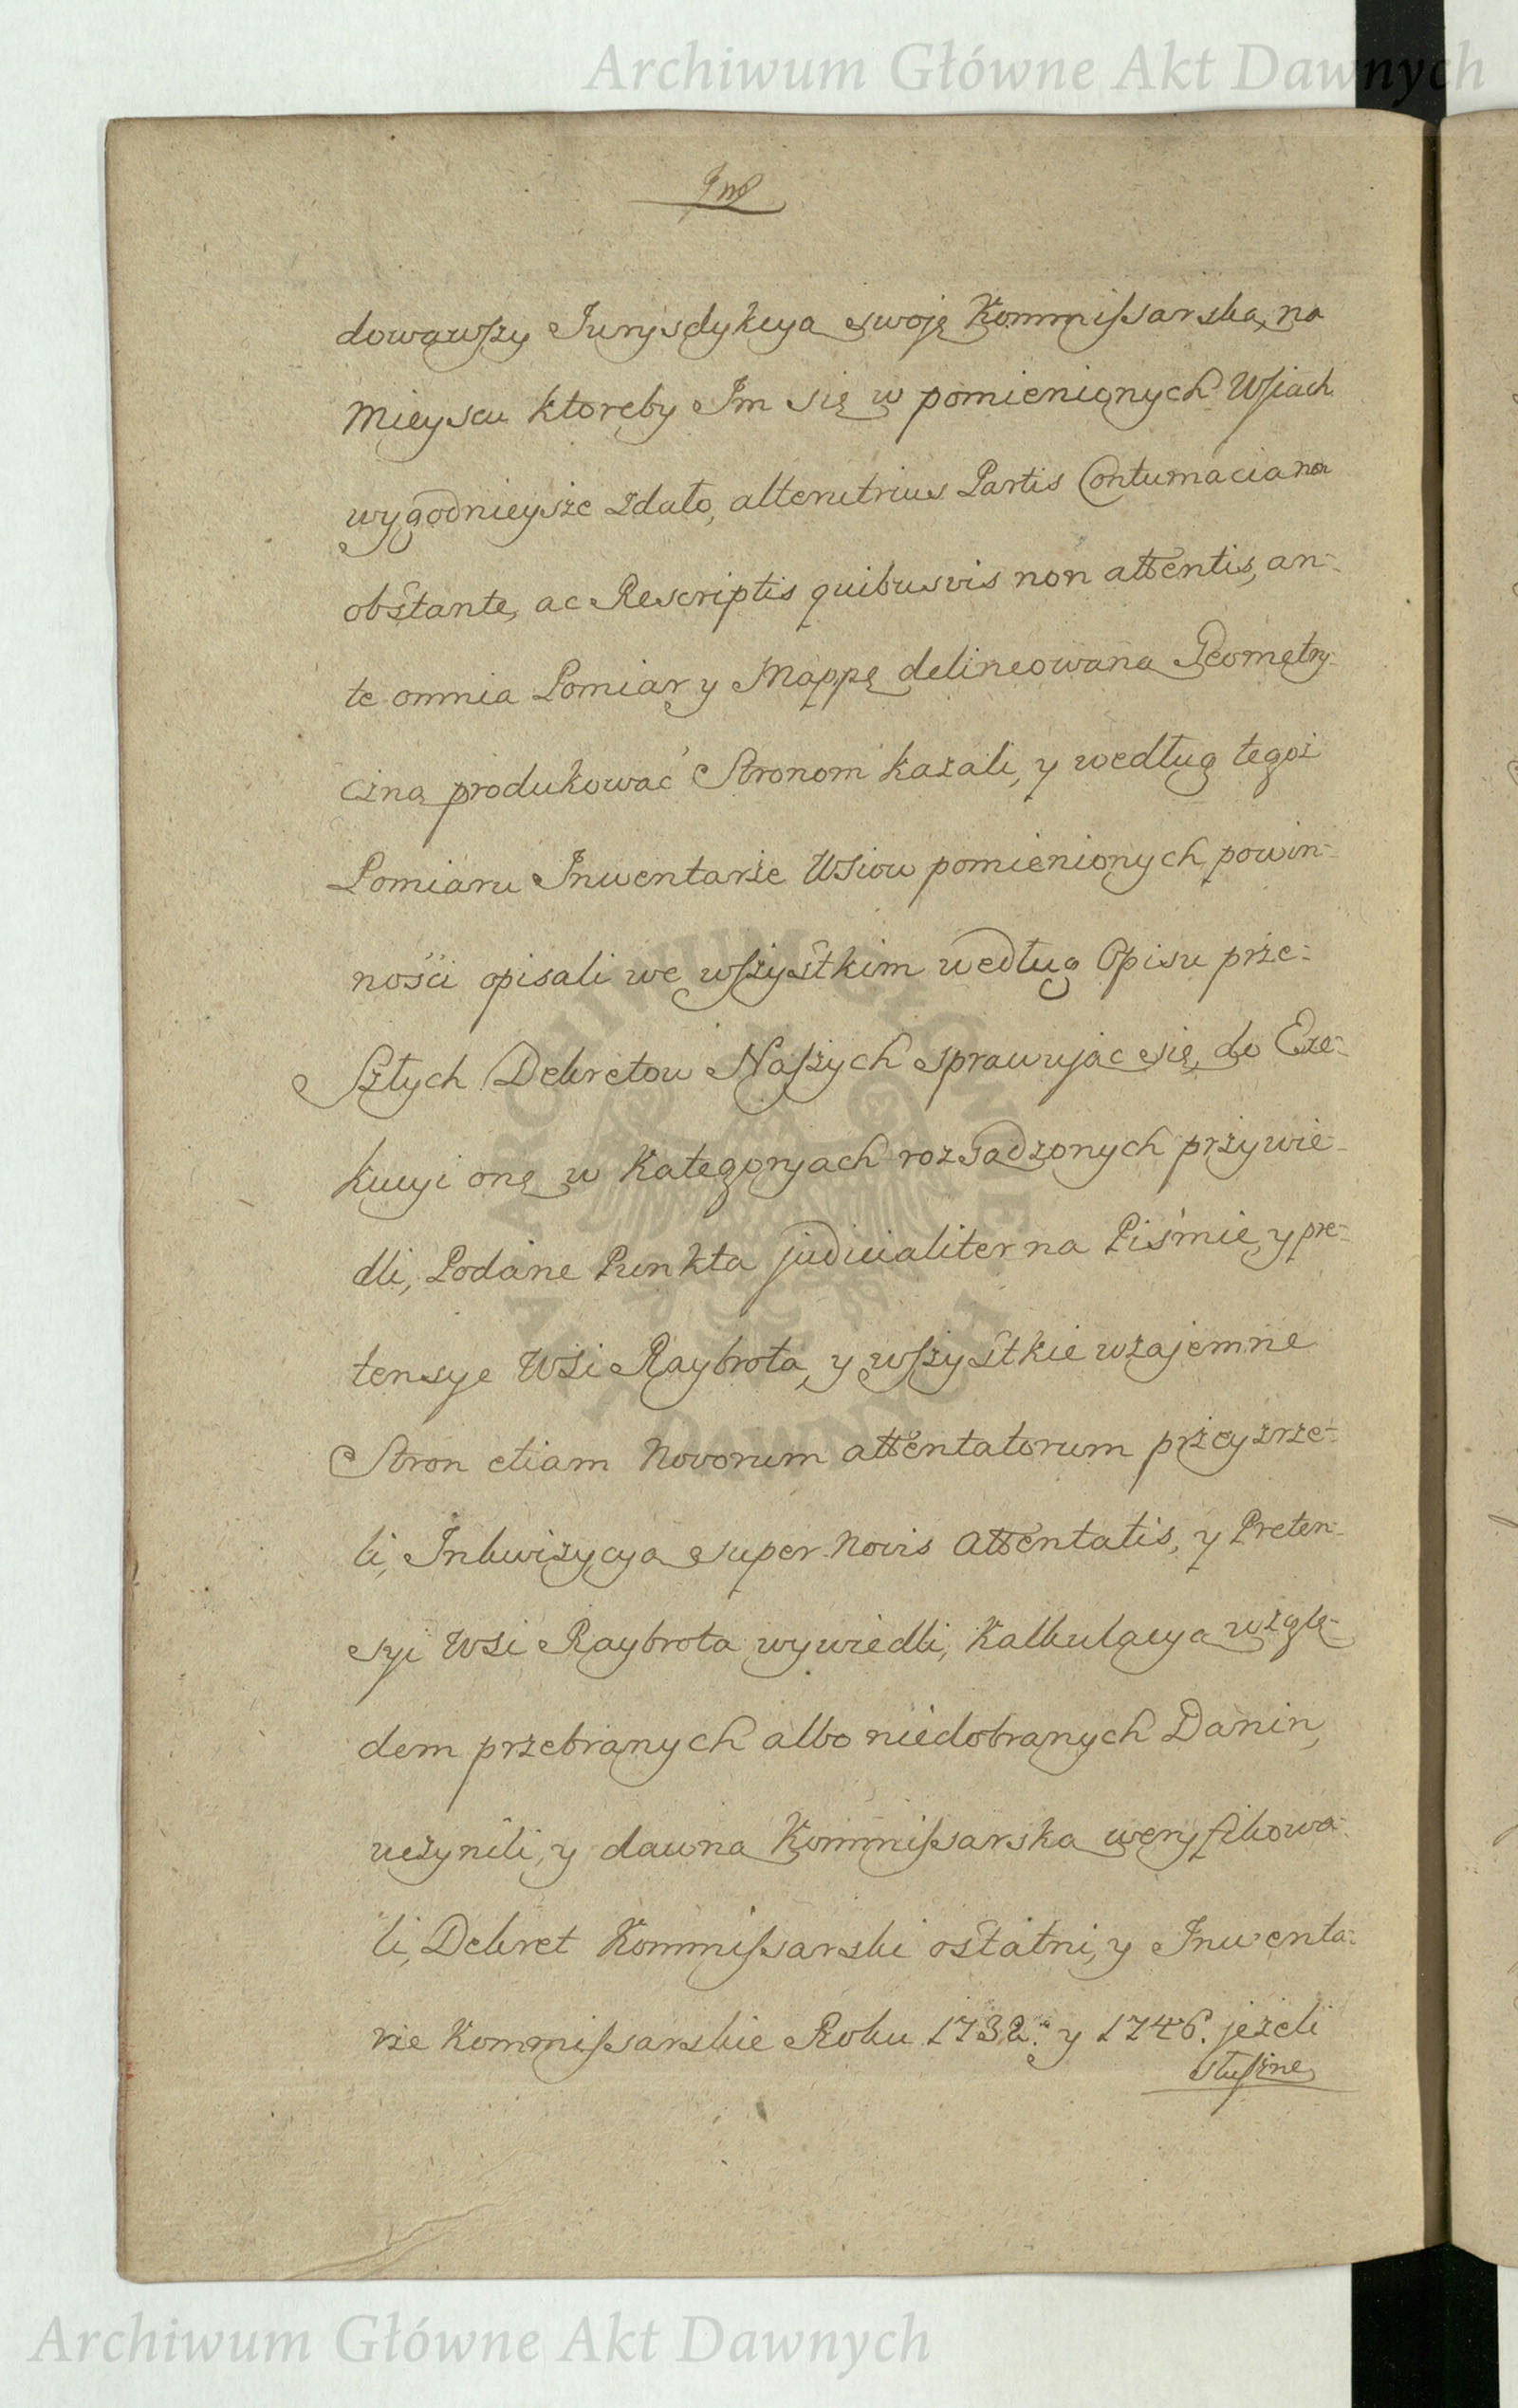 Archiwum Główne Akt Dawnych
dowawszy Jurysdykcya swoję Kommissarską, na
Mieyscu ktoreby Im się w pomienionych Wsiach
wygodnieysze zdało, alterutrius Partis Contumacia non
obstante, ac Rescriptis quibusvis non attentis, an-
te omnia Pomiar y Mappę delineowaną Geometry-
czną produkować Stronom kazali, y według tegoż
Pomiaru Inwentarze Wsiow pomienionych powin-
ności opisali we wszystkim według Opisu prze-
szłych Dekretow Naszych sprawując się, do Exe-
kucyi onę w Kategoryach rozsądzonych przywie-
dli, Podane Punkta judicialiter na Piśmie, y pre-
tensye Wsi Raybrota, y wszystkie wzajemne
Stron etiam Novorum attentatorum przeyzrze-
li, Inkwizycyą super Novis Attentatis, y Preten-
syi Wsi Raybrota wywiedli, Kalkulacyą wzglę-
dem przebranych albo niedobranych Danin,
uczynili, y dawną Kommissarską weryfikowa-
li, Dekret Kommissarski ostatni, y Inwenta-
rze Kommissarskie Roku 1732. y 1746. jeżeli
słuszne
ARCHIWUM GŁÓWNE
AKT DAWNYCH
Archiwum Główne Akt Dawnych